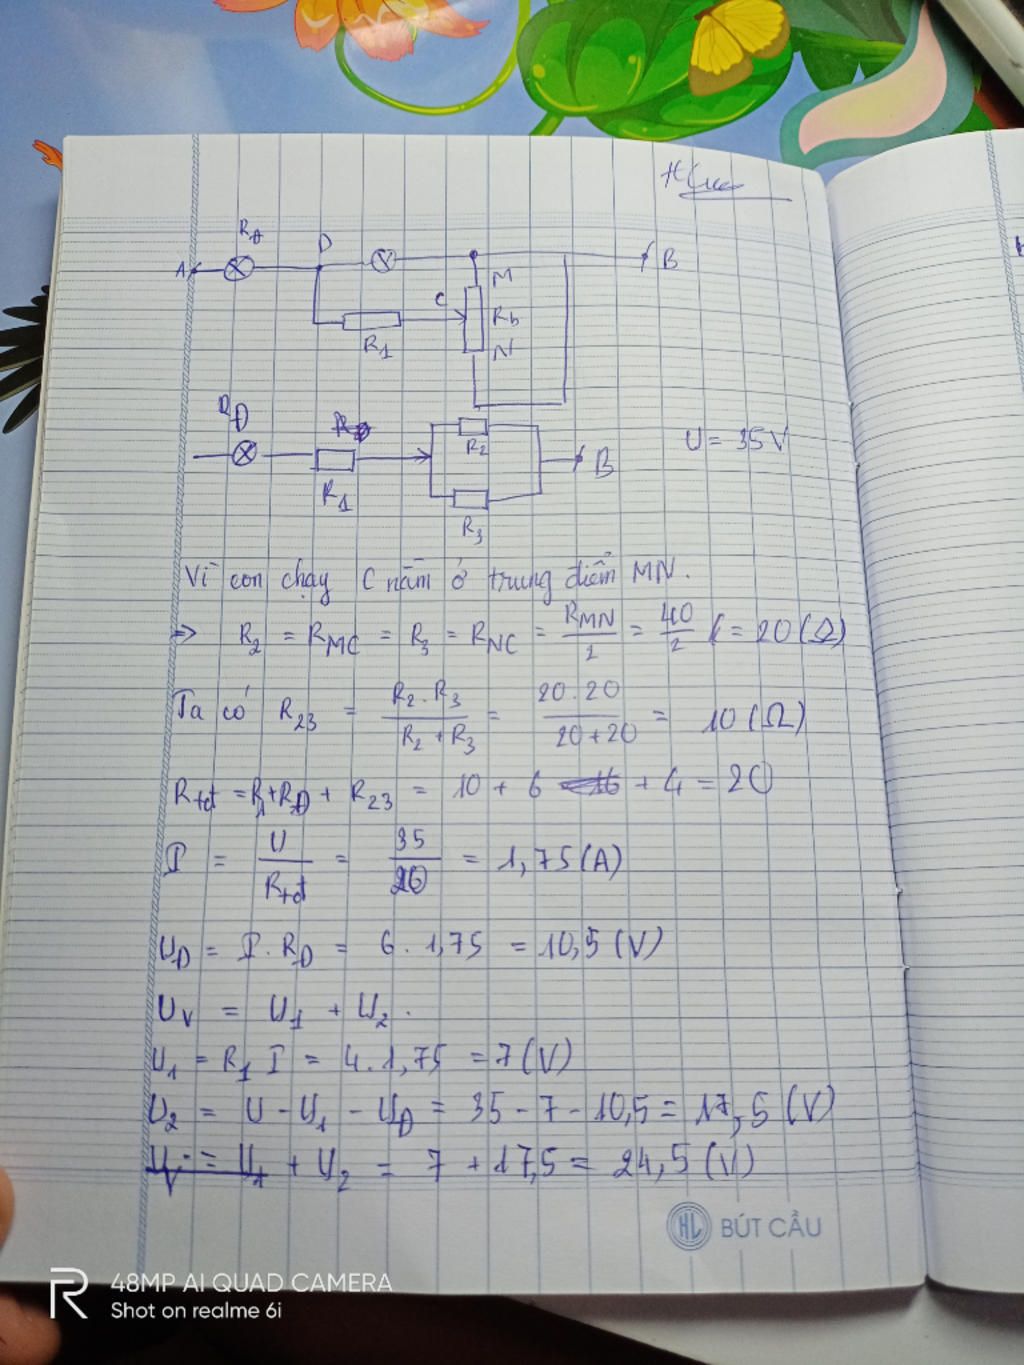 R_Đ
D
A
V
B
M
C
R_b
N
R_1
R_Đ
R_2
U = 35V
B
R_1
R_3
Vì con chạy C nằm ở trung điểm MN.
=> R_2 = R_MC = R_3 = R_NC = R_MN/2 = 40/2 = 20 (Ω)
Ta có R_23 = R_2.R_3/R_2+R_3 = 20.20/20+20 = 10 (Ω)
R_tđ = R_1+R_Đ + R_23 = 10 + 6 + 4 = 20
I = U/R_tđ = 35/20 = 1,75 (A)
U_Đ = I.R_Đ = 6.1,75 = 10,5 (V)
U_V = U_1 + U_2.
U_1 = R_1 I = 4.1,75 = 7 (V)
U_2 = U - U_1 - U_Đ = 35 - 7 - 10,5 = 17,5 (V)
U_V = U_1 + U_2 = 7 + 17,5 = 24,5 (V)
HL BÚT CẦU
R 48MP AI QUAD CAMERA
Shot on realme 6i